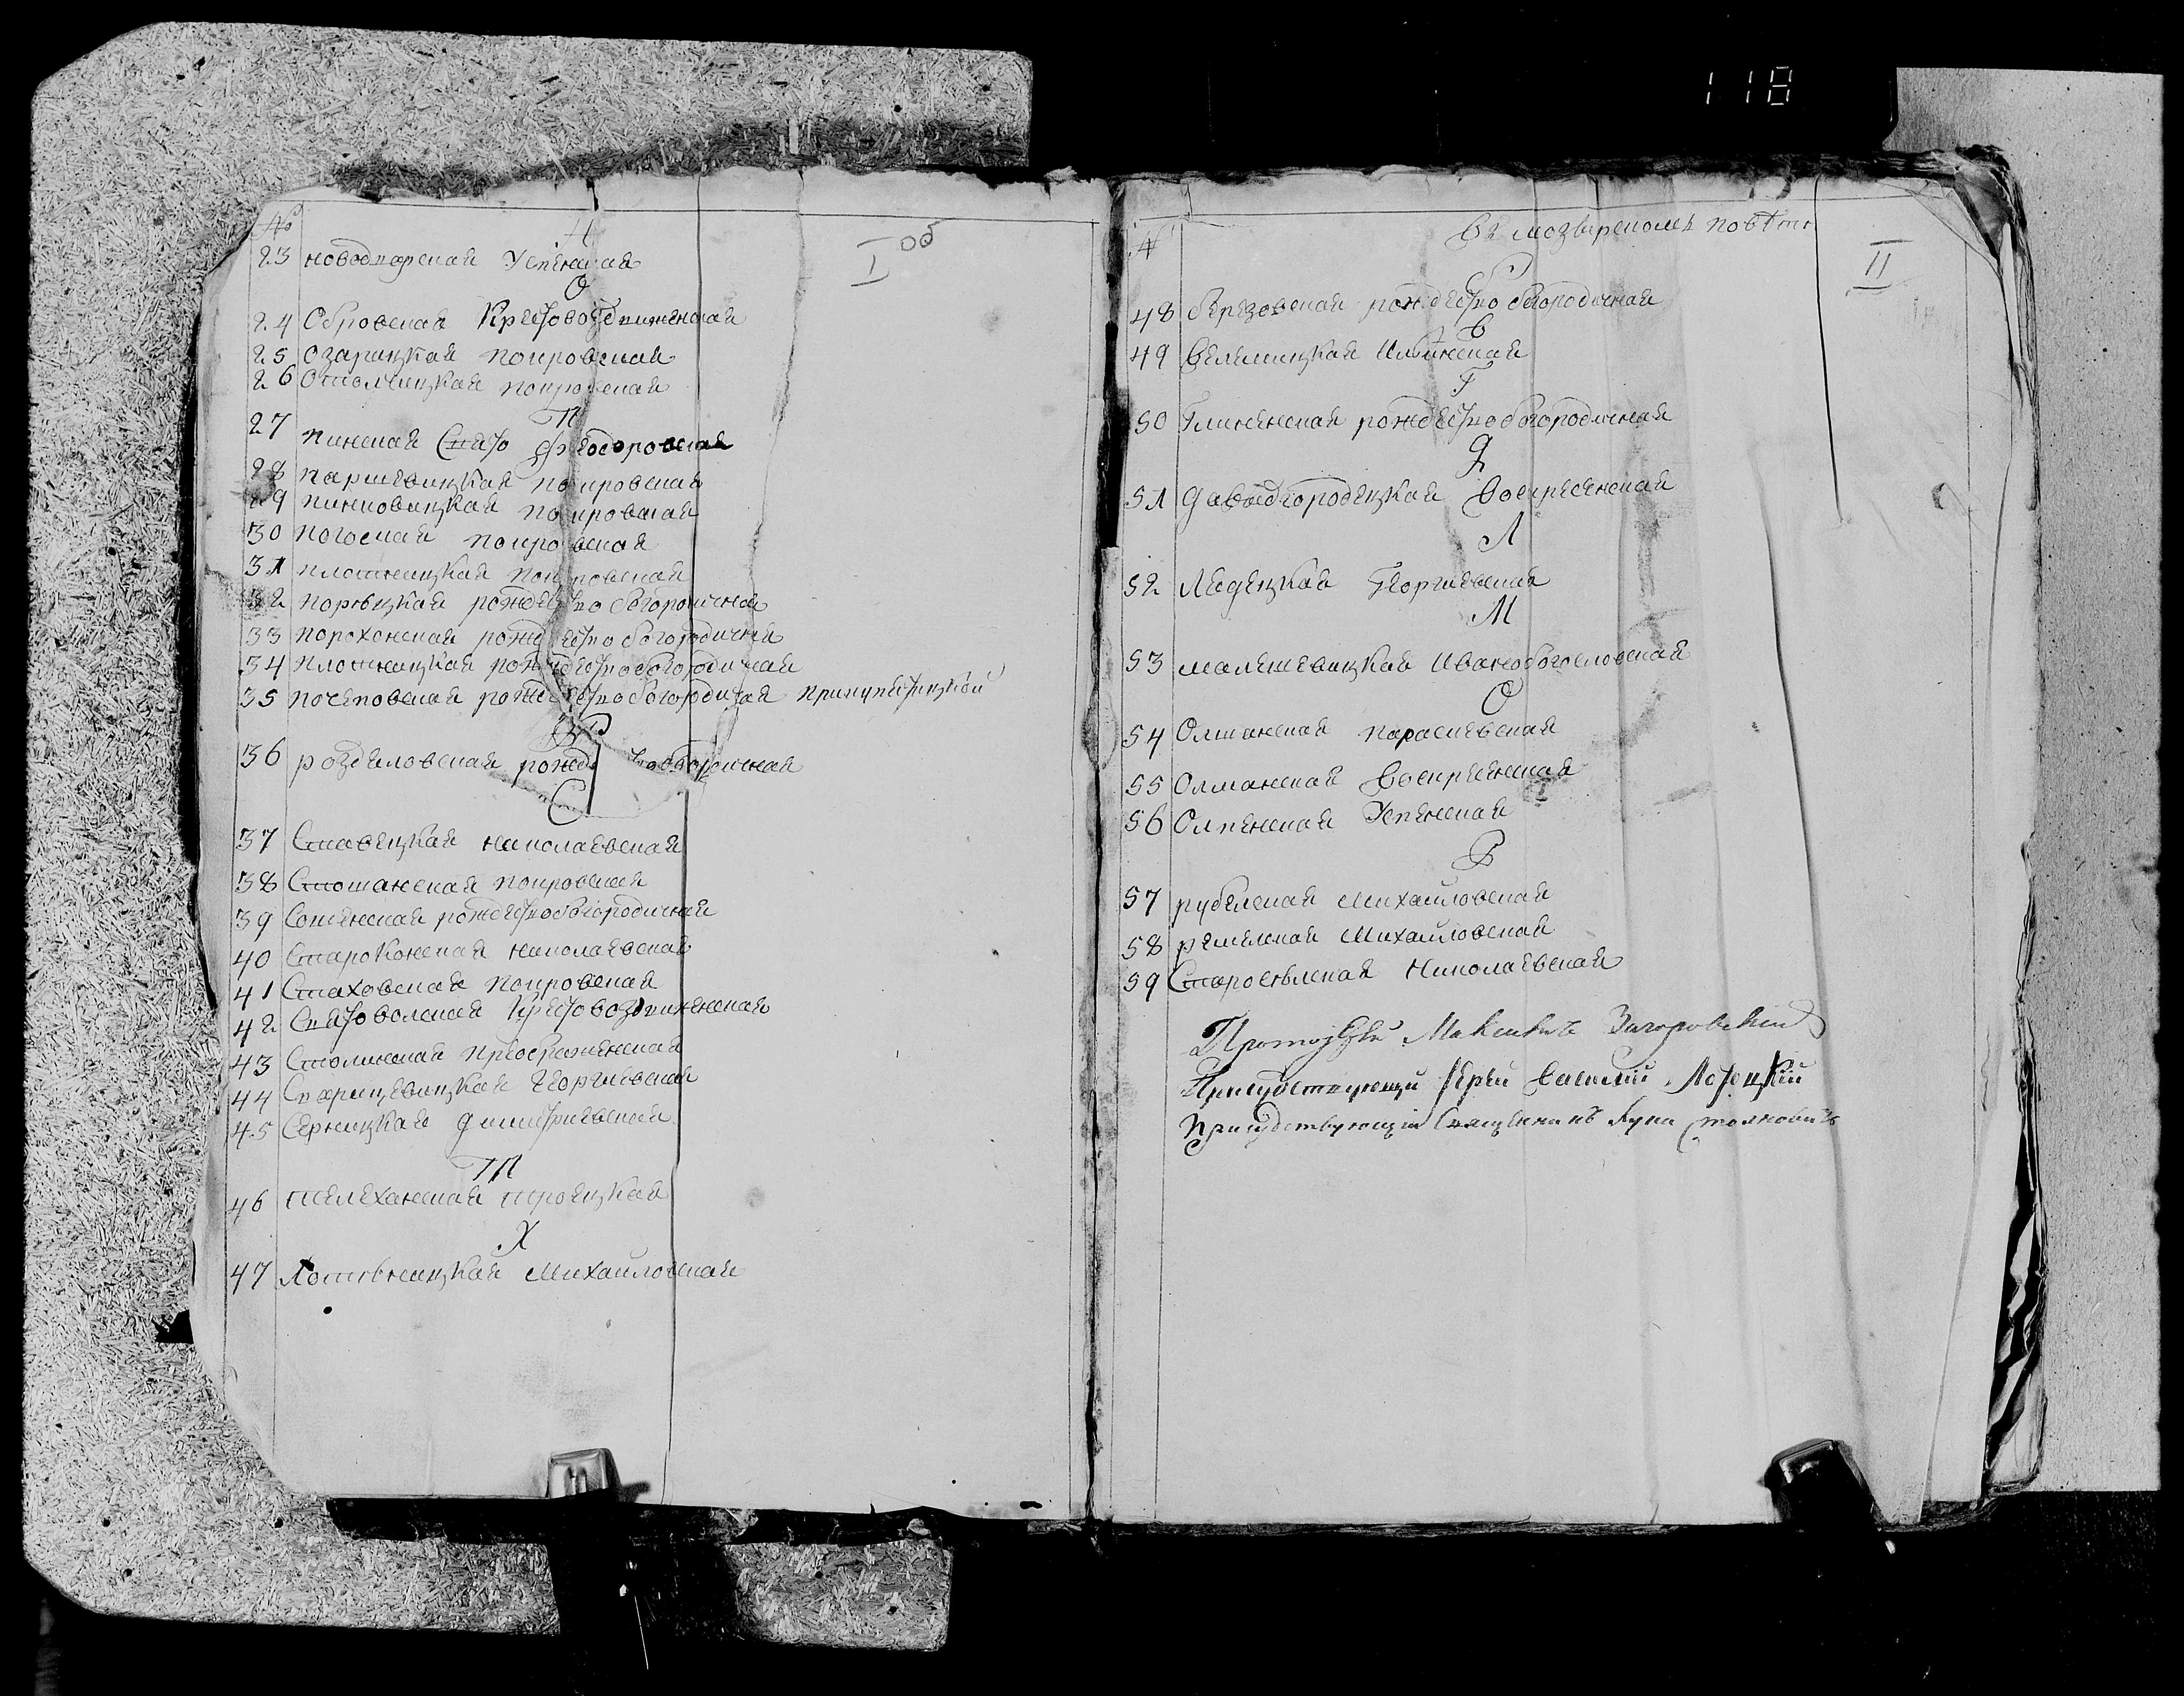 118
№
Н
I об
23 Новодворская Успенская
О
24 Обровская Крестовоздвиженская
25 Озарицкая покровская
26 Отолчицкая покровская
П
27 пинская Свято Феодоровская
28 паршевицкая покровская
29 пинковицкая покровская
30 погоская покровская
31 плотницкая покровская
32 порѣцкая рождество богородичная
33 порохонская рождество богородичная
34 плотницкая рождествобогородичная
35 почаповская рождествобогородичная
Р
36 роздяловская
С
37 Ставецкая николаевская
38 Стошанская покровская
39 Сошенская рождествобогородичная
40 Староконская николаевская
41 Стаховская покровская
42 Святовольская Крестовоздвиженская
43 Столинская преображенская
44 Спорицевицкая Георгиевская
45 Серницкая димитриевская
Т
46 телеханская троецкая
Х
47 Хотѣницкая Михаиловская
№
въ мозырскомъ повѣтѣ
II
Б
48 березовская рождество богородичная
В
49 Велемицкая Илинская
Г
50 Глинская рождествобогородичная
Д
51 Давыдгородецкая Воскресенская
Л
52 Лядецкая Георгиевская
М
53 малешевицкая Иванобогословская
О
54 Олшанская параскевская
55 Олманская Воскресенская
56 Олпенская Успенская
Р
57 рубелская Михаиловская
58 ремелская Михаиловская
59 Староселская Николаевская
Протоіерей Загоровский
Присудствующи Іерей Василий
Присудствующій Священникъ Лука